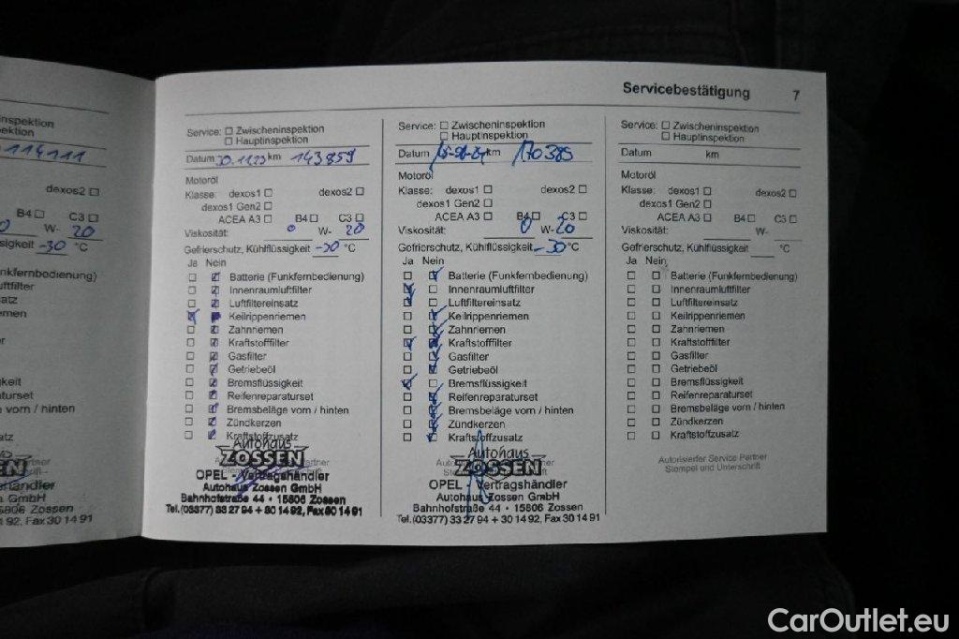 nspektion
ektion
114111
dexos2 ☐
B4 ☐ C3 ☐
0 W- 20
ssigkeit -30 °C
kfernbedienung)
uftfilter
satz
emen
keit
aturset
e vorn / hinten
atz
SEN
ertshändler
en GmbH
806 Zossen
1 92, Fax 30 14 91
Servicebestätigung 7
Service: ☐ Zwischeninspektion
☐ Hauptinspektion
Datum 30.11.23 km 143859
Motoröl
Klasse: dexos1 ☐ dexos2 ☐
dexos1 Gen2 ☐
ACEA A3 ☐ B4 ☐ C3 ☐
Viskosität: 0 W- 20
Gefrierschutz, Kühlflüssigkeit -30 °C
Ja Nein
Batterie (Funkfernbedienung)
Innenraumluftfilter
Luftfiltereinsatz
Keilrippenriemen
Zahnriemen
Kraftstofffilter
Gasfilter
Getriebeöl
Bremsflüssigkeit
Reifenreparaturset
Bremsbeläge vorn / hinten
Zündkerzen
Kraftstoffzusatz
Autohaus
ZOSSEN
OPEL - Vertragshändler
Autohaus Zossen GmbH
Bahnhofstraße 44 · 15806 Zossen
Tel. (03377) 33 27 94 + 30 14 92, Fax 30 14 91
Service: ☐ Zwischeninspektion
☐ Hauptinspektion
Datum km 170385
Motoröl
Klasse: dexos1 ☐ dexos2 ☐
dexos1 Gen2 ☐
ACEA A3 ☐ B4 ☐ C3 ☐
Viskosität: 0 W- 20
Gefrierschutz, Kühlflüssigkeit -30 °C
Ja Nein
Batterie (Funkfernbedienung)
Innenraumluftfilter
Luftfiltereinsatz
Keilrippenriemen
Zahnriemen
Kraftstofffilter
Gasfilter
Getriebeöl
Bremsflüssigkeit
Reifenreparaturset
Bremsbeläge vorn / hinten
Zündkerzen
Kraftstoffzusatz
Autohaus
ZOSSEN
OPEL - Vertragshändler
Autohaus Zossen GmbH
Bahnhofstraße 44 · 15806 Zossen
Tel. (03377) 33 27 94 + 30 14 92, Fax 30 14 91
Service: ☐ Zwischeninspektion
☐ Hauptinspektion
Datum km
Motoröl
Klasse: dexos1 ☐ dexos2 ☐
dexos1 Gen2 ☐
ACEA A3 ☐ B4 ☐ C3 ☐
Viskosität: W-
Gefrierschutz, Kühlflüssigkeit °C
Ja Nein
☐ ☐ Batterie (Funkfernbedienung)
☐ ☐ Innenraumluftfilter
☐ ☐ Luftfiltereinsatz
☐ ☐ Keilrippenriemen
☐ ☐ Zahnriemen
☐ ☐ Kraftstofffilter
☐ ☐ Gasfilter
☐ ☐ Getriebeöl
☐ ☐ Bremsflüssigkeit
☐ ☐ Reifenreparaturset
☐ ☐ Bremsbeläge vorn / hinten
☐ ☐ Zündkerzen
☐ ☐ Kraftstoffzusatz
Autorisierter Service Partner
Stempel und Unterschrift
CarOutlet.eu